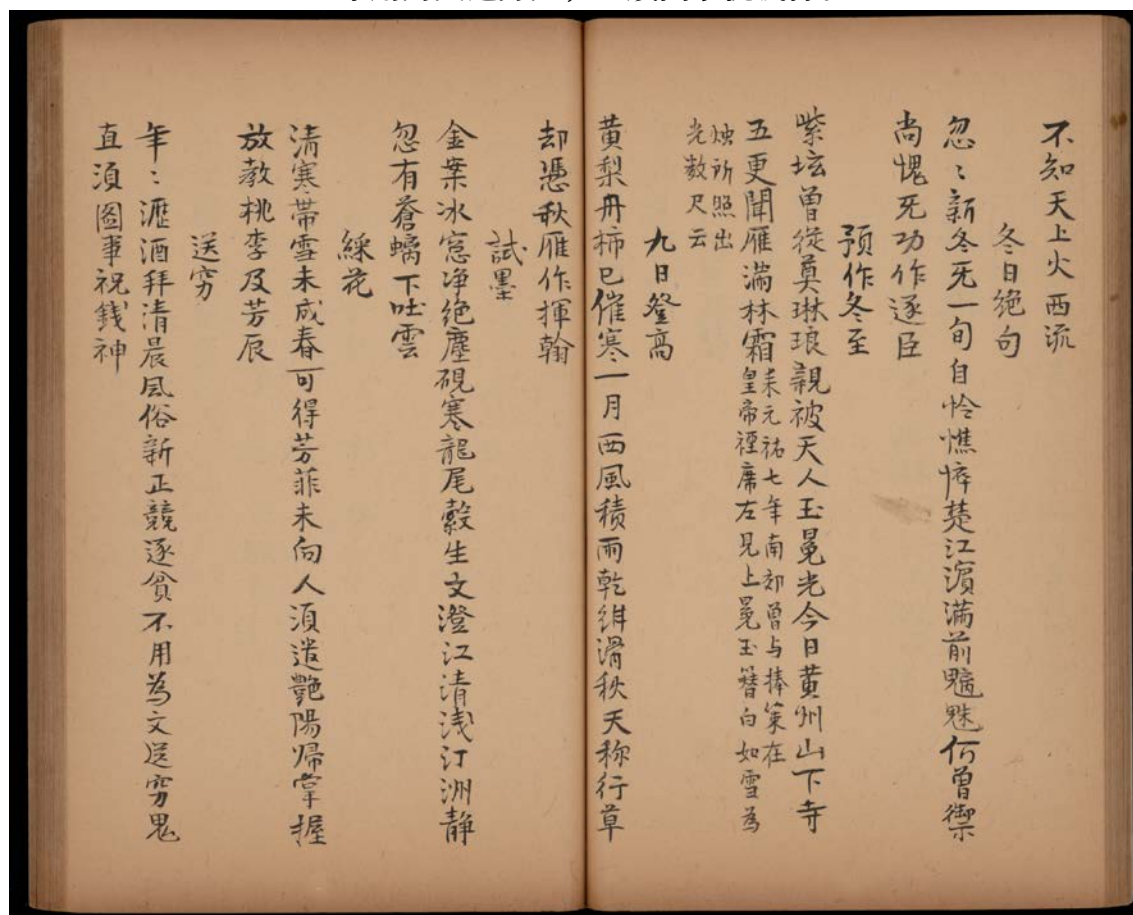 不知天上火西流
冬日絕句
忽〻新冬无一旬自怜憔悴楚江濱滿前魑魅何曾禦
尚愧无功作逐臣
預作冬至
紫坛曾從奠琳琅親被天人玉冕光今日黄州山下寺
五更聞雁滿林霜
耒元祐七年南郊曾与捧策在
皇帝裀席左見上冕玉簪白如雪為
燭所照出
光数尺云
九日登高
黄梨丹柿已催寒一月西風積雨乾紺滑秋天称行草
却憑秋雁作揮翰
試墨
金葉冰窓净絶塵硯寒龍尾縠生文澄江清浅汀洲静
忽有蒼螭下吐雲
綵花
清寒带雪未成春可得芳菲未向人須遣艷陽归掌握
放教桃李及芳辰
送穷
年〻瀝酒拜清晨風俗新正競逐貧不用為文送穷鬼
直須圖事祝錢神